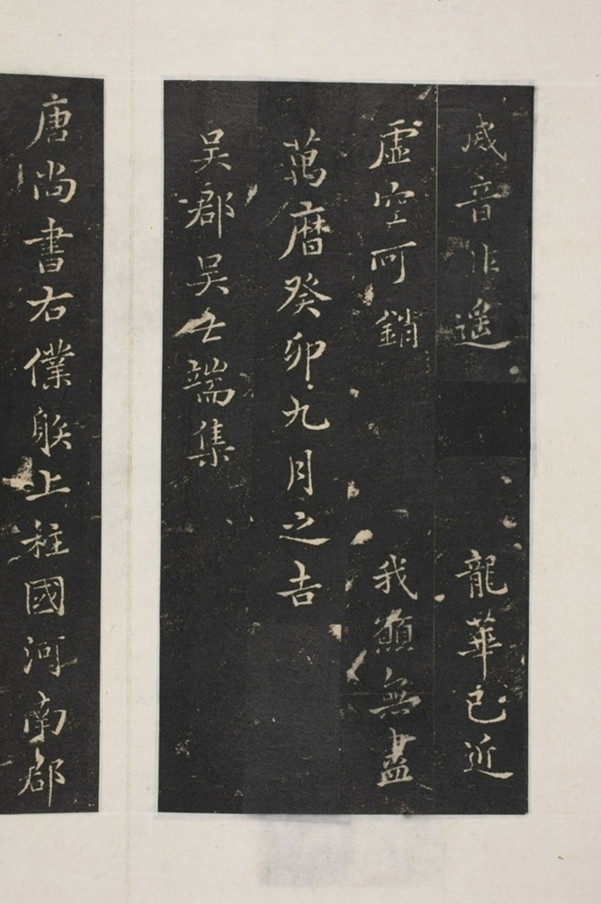 威音非遥 龍華已近
虛空可銷 我願無盡
萬曆癸卯九月之吉
吳郡吳士端集
唐尚書右僕射上柱國河南郡